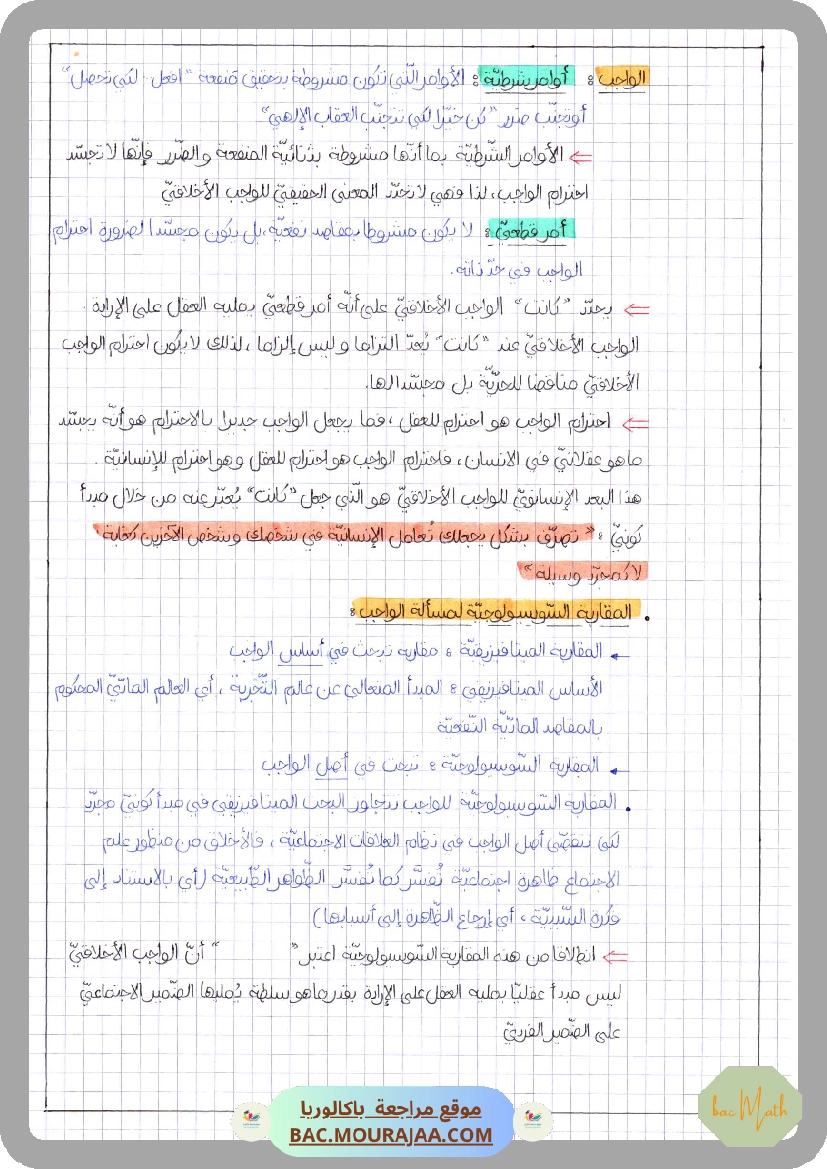 الواجب : أوامر شرطيّة : الأوامر الّتي تكون مشروطة بتحقيق منفعة "افعل.. لكي تحصل"
أو تجنّب ضرر "كن خيّرا لكي تتجنّب العقاب الإلهي"
⇐ الأوامر الشّرطيّة بما أنّها مشروطة بثنائيّة المنفعة والضّرر فإنّها لا تجسّد
احترام الواجب، لذا فهي لا تحدّد المعنى الحقيقيّ للواجب الأخلاقيّ
أمر قطعيّ : لا يكون مشروطا بمقاصد نفعيّة، بل يكون مجسّدا لضرورة احترام
الواجب في حدّ ذاته.
⇐ يحدّد "كانت" الواجب الأخلاقيّ على أنّه أمر قطعيّ يمليه العقل على الإرادة.
الواجب الأخلاقيّ عند "كانت" يُعدّ التزاما وليس إلزاما، لذلك لا يكون احترام الواجب
الأخلاقيّ مناقضا للحرّيّة بل مجسّدا لها.
⇐ احترام الواجب هو احترام للعقل، فما يجعل الواجب جديرا بالاحترام هو أنّه يجسّد
ما هو عقلانيّ في الانسان، فاحترام الواجب هو احترام للعقل وهو احترام للإنسانيّة.
هذا البعد الإنسانويّ للواجب الأخلاقيّ هو الّتي جعل "كانت" يُعبّر عنه من خلال مبدأ
كونيّ : "تصرّف بشكل يجعلك تُعامل الإنسانيّة في شخصك وشخص الآخرين كغاية
لا كمجرّد وسيلة"
. المقاربة السّوسيولوجيّة لمسألة الواجب :
← المقاربة الميتافيزيقيّة : مقاربة تبحث في أساس الواجب
الأساس الميتافيزيقي : المبدأ المتعالي عن عالم التّجربة، أي العالم المادّيّ المحكوم
بالمقاصد المادّيّة النّفعيّة
← المقاربة السّوسيولوجيّة : تبحث في أصل الواجب
. المقاربة السّوسيولوجيّة للواجب تتجاوز البحث الميتافيزيقي في مبدأ كونيّ مجرّد
لكي تتقصّى أصل الواجب في نظام العلاقات الاجتماعيّة، فالأخلاق من منظور علم
الاجتماع ظاهرة اجتماعيّة تُفسَّر كما تُفسَّر الظّواهر الطّبيعيّة (أي بالاستناد إلى
فكرة السّببيّة، أي إرجاع الظّاهرة إلى أسبابها)
⇐ انطلاقا من هذه المقاربة السّوسيولوجيّة اعتبر " " أنّ الواجب الأخلاقيّ
ليس مبدأ عقليّا يمليه العقل على الإرادة بقدر ما هو سلطة يُمليها الضّمير الاجتماعيّ
على الضّمير الفرديّ
موقع مراجعة باكالوريا
BAC.MOURAJAA.COM
bac Math